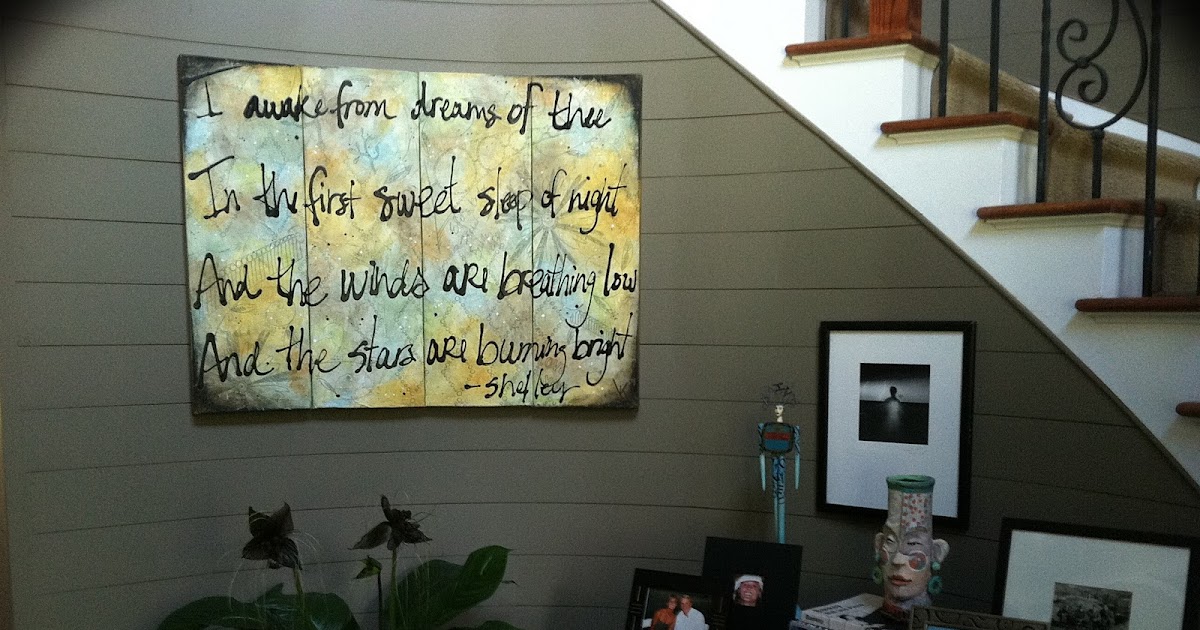 I awake from dreams of thee
In the first sweet sleep of night
And the winds are breathing low
And the stars are burning bright
-shelley